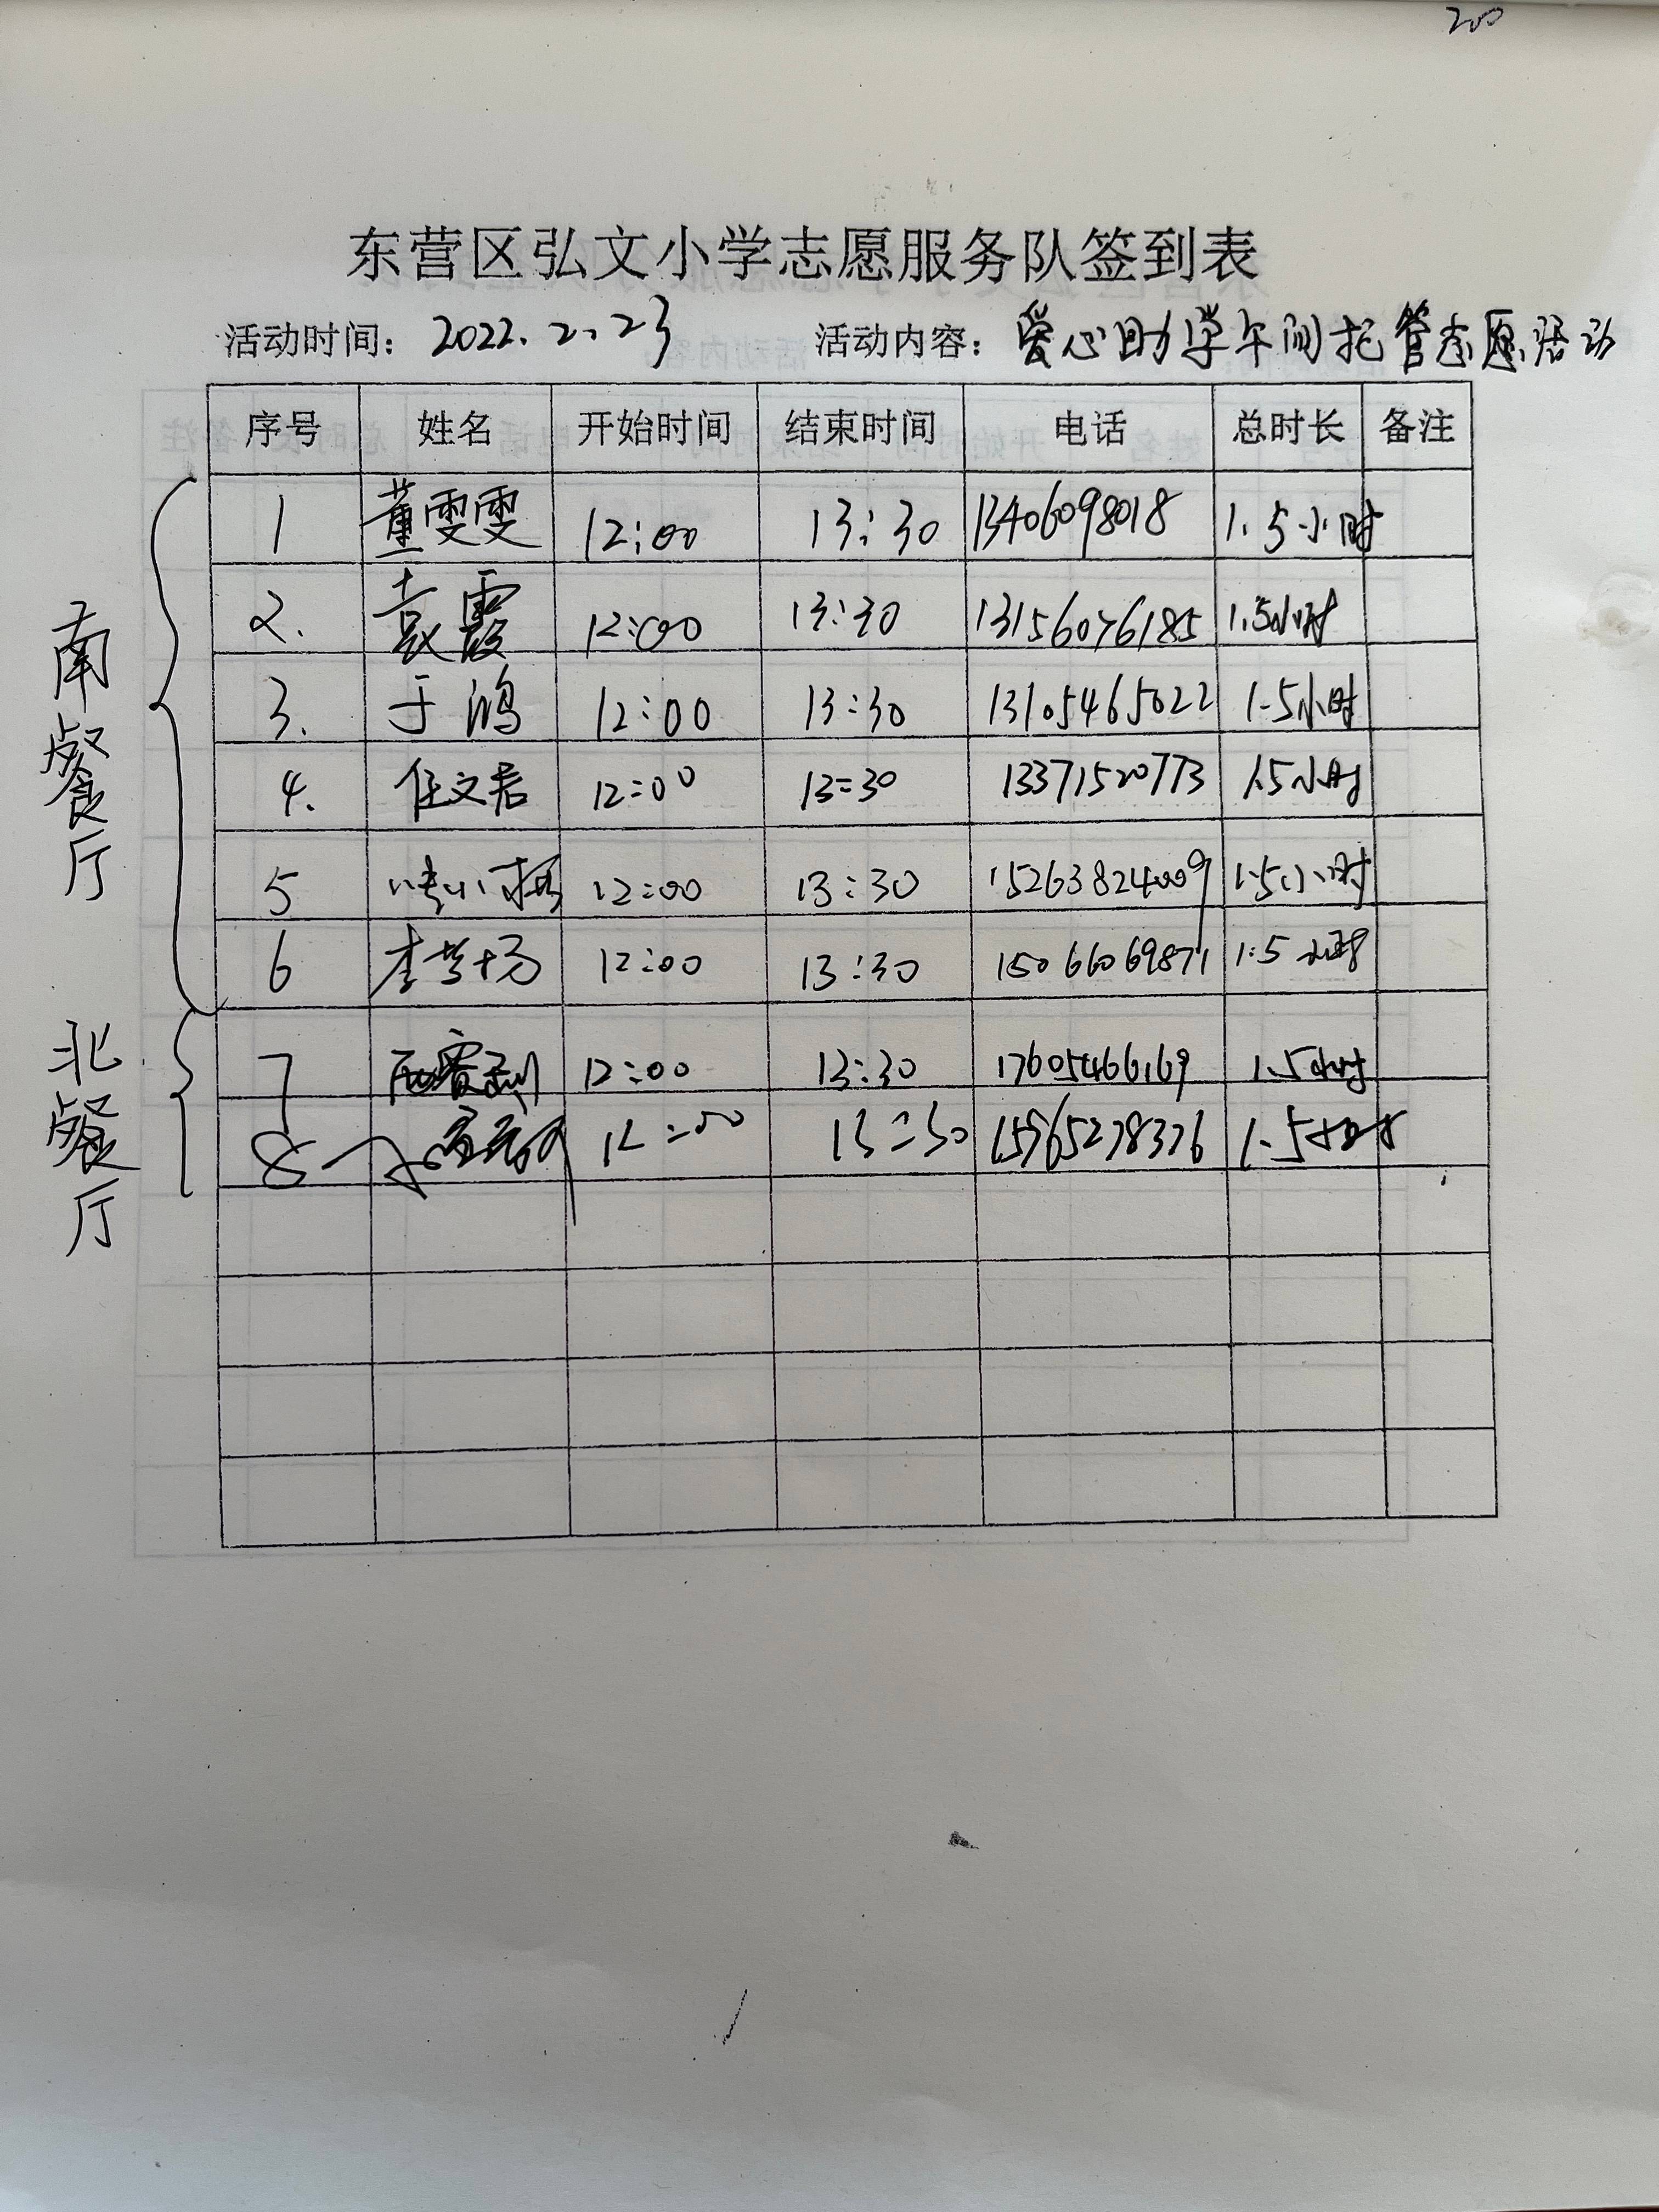 200
东营区弘文小学志愿服务队签到表
活动时间: 2022.2.23 活动内容: 爱心助学午间托管志愿活动
序号 姓名 开始时间 结束时间 电话 总时长 备注
南餐厅
1 董雯雯 12:00 13:30 13406098018 1.5小时
2. 袁霞 12:00 13:30 13156076185 1.5小时
3. 于鸿 12:00 13:30 13105465022 1.5小时
4. 任文君 12:00 13:30 13371520773 1.5小时
5 12:00 13:30 15263824009 1.5小时
6 李 杨 12:00 13:30 15066069871 1.5小时
北餐厅
7 12:00 13:30 17605466169 1.5小时
8 12:00 13:30 15965278376 1.5小时